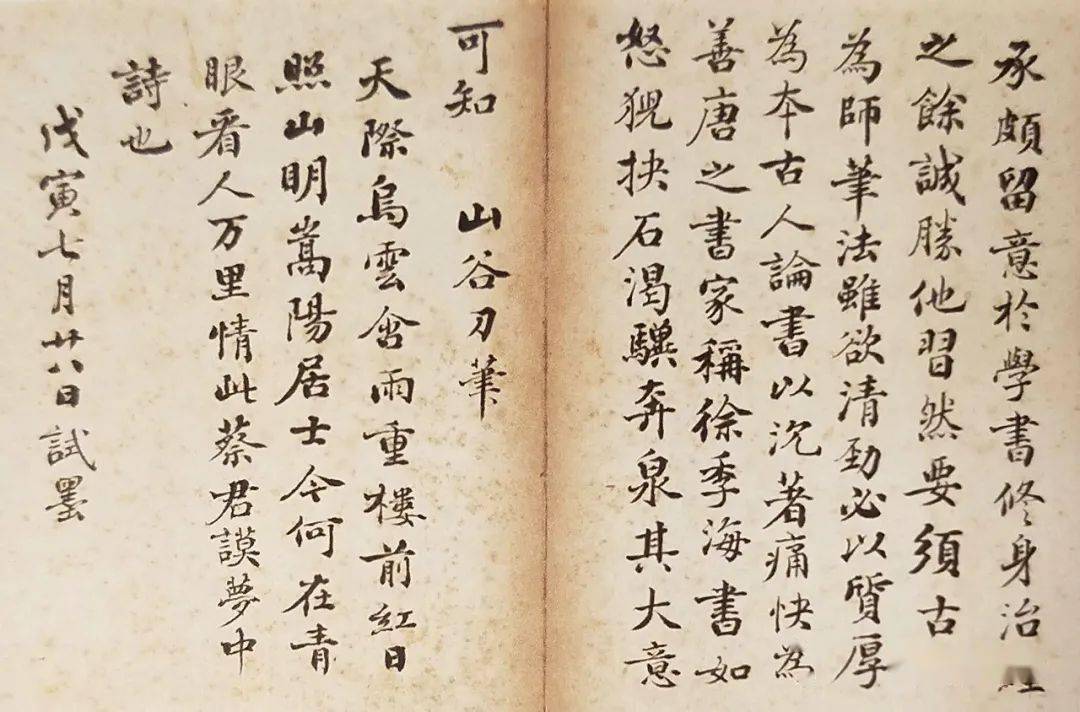 承頗留意於學書修身治
之餘誠勝他習然要須古
為師筆法雖欲清勁必以質厚
為本古人論書以沉著痛快為
善唐之書家稱徐季海書如
怒猊抉石渴驥奔泉其大意
可知 山谷刀筆
天際烏雲含雨重樓前紅日
照山明嵩陽居士今何在青
眼看人万里情此蔡君謨夢中
詩也
戊寅七月廿八日試墨